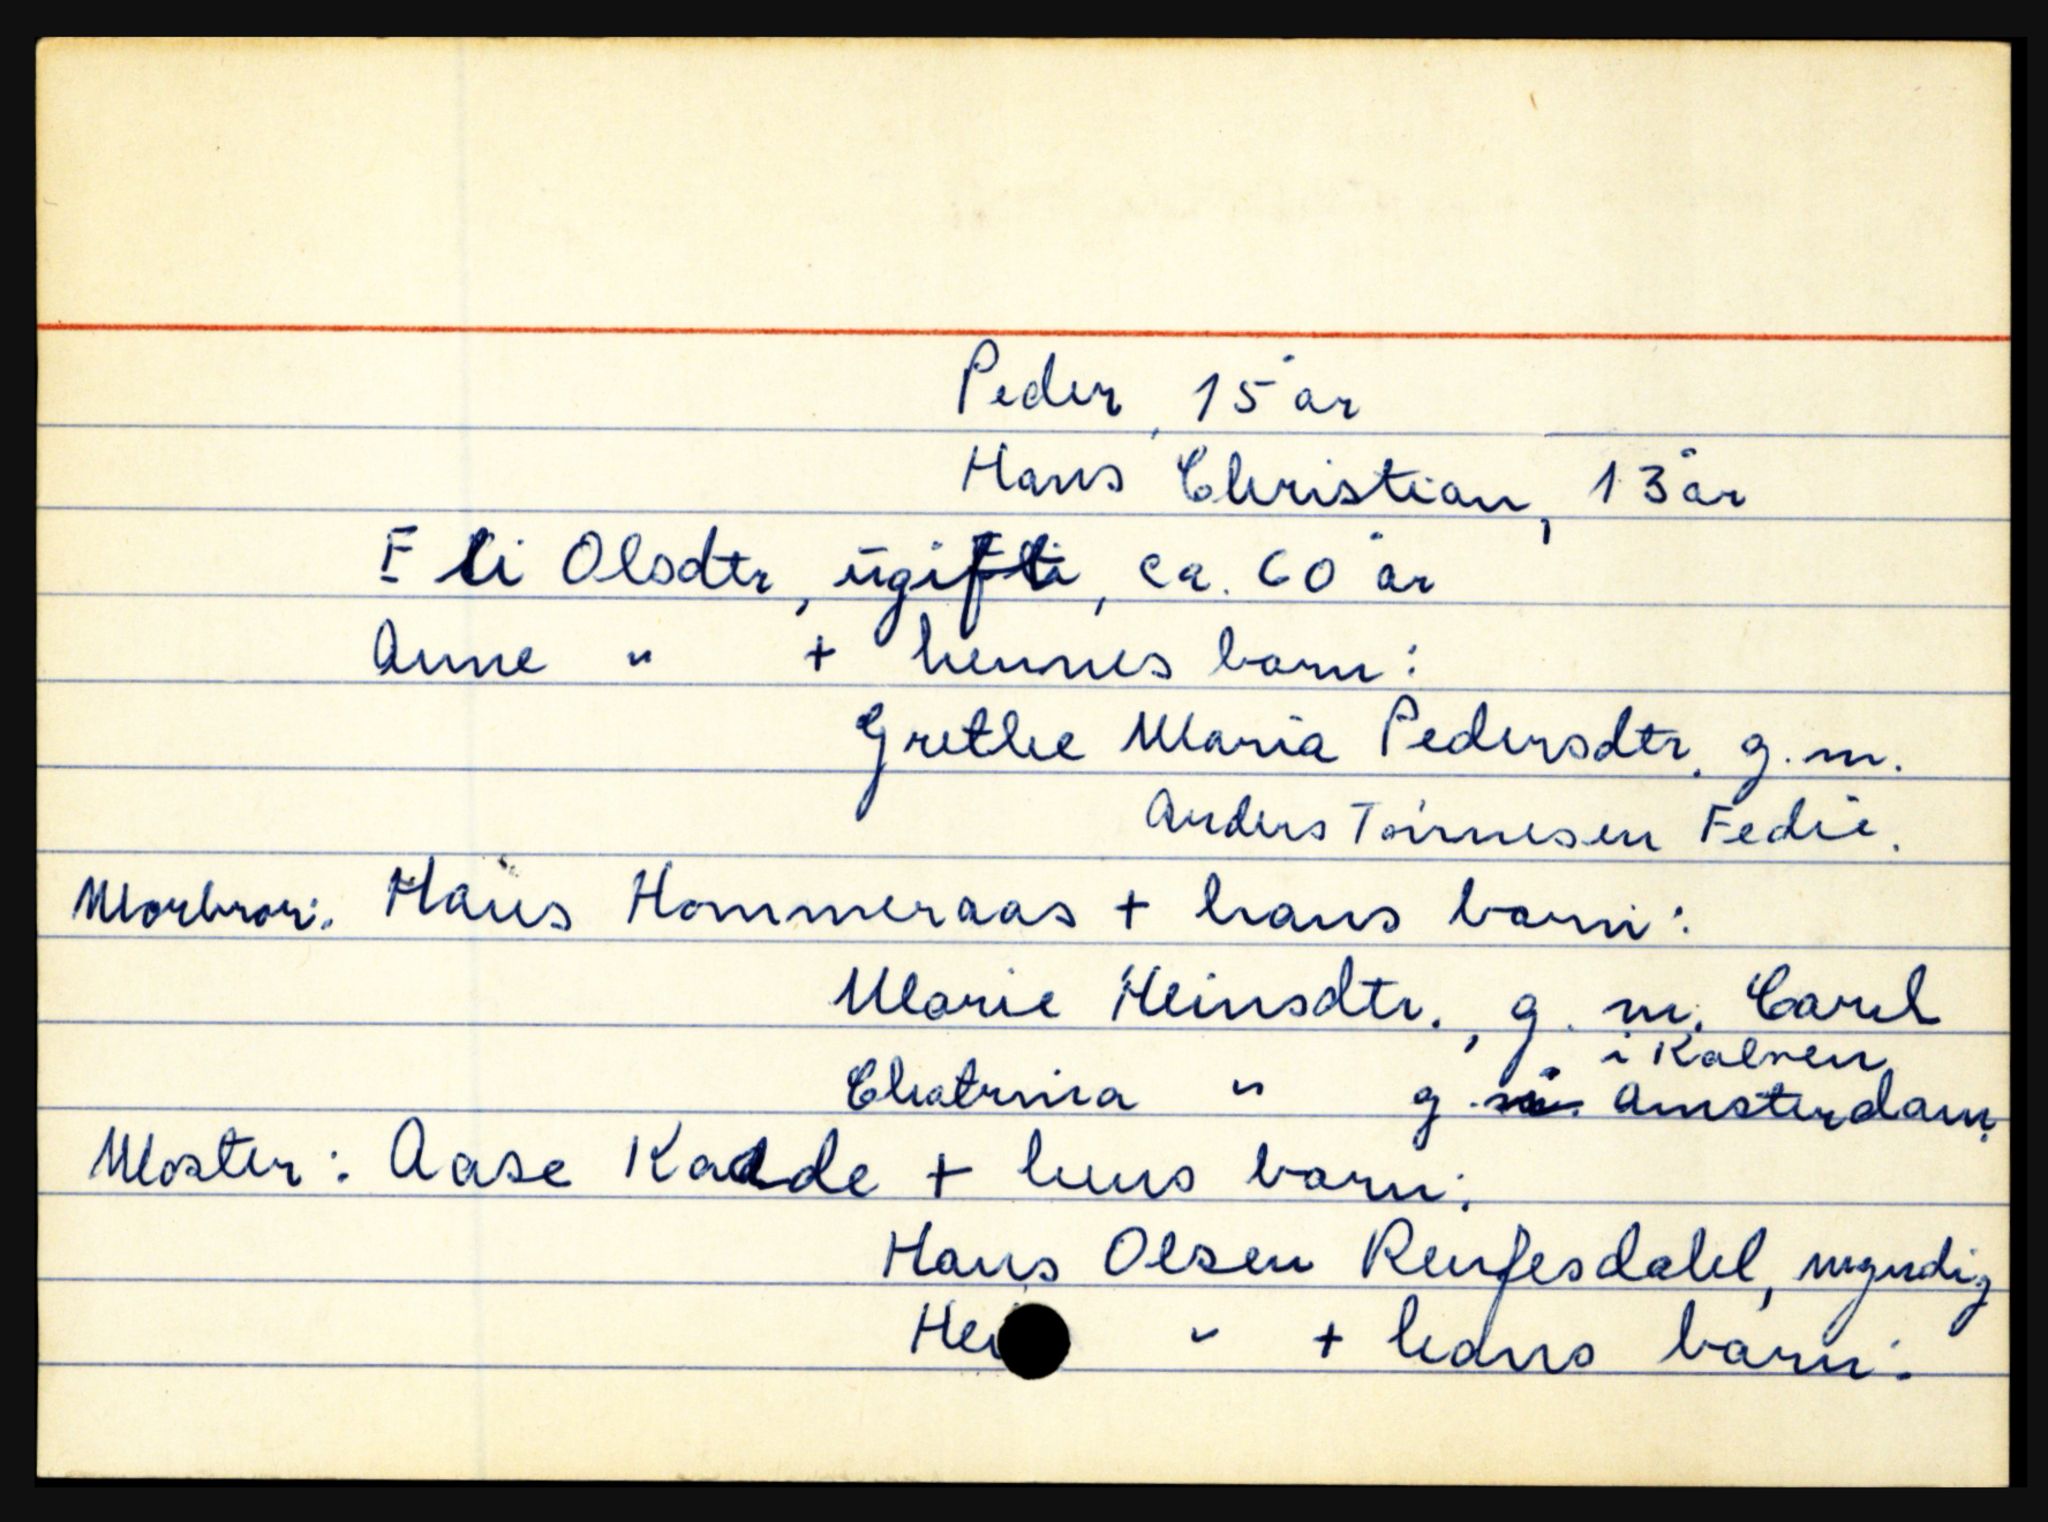 Peder, 15 år
Hans Christian, 13 år
Eli Olsdtr, ugift, ca. 60 år
Anne " + hennes barn:
Grethe Maria Pedersdtr. g. m.
Anders Tönnesen Fedie.
Morbror: Hans Hommeraas + hans barn:
Marie Heinsdtr., g. m. Carl
i Kalven
Chatrina " g. i Amsterdam.
Moster: Aase Kadde + hens barn:
Hans Olsen Renfesdahl, myndig
Hei " + hans barn: